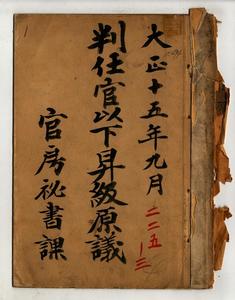 大正十五年九月
二二五
一三
判任官以下昇級原議
官房秘書課